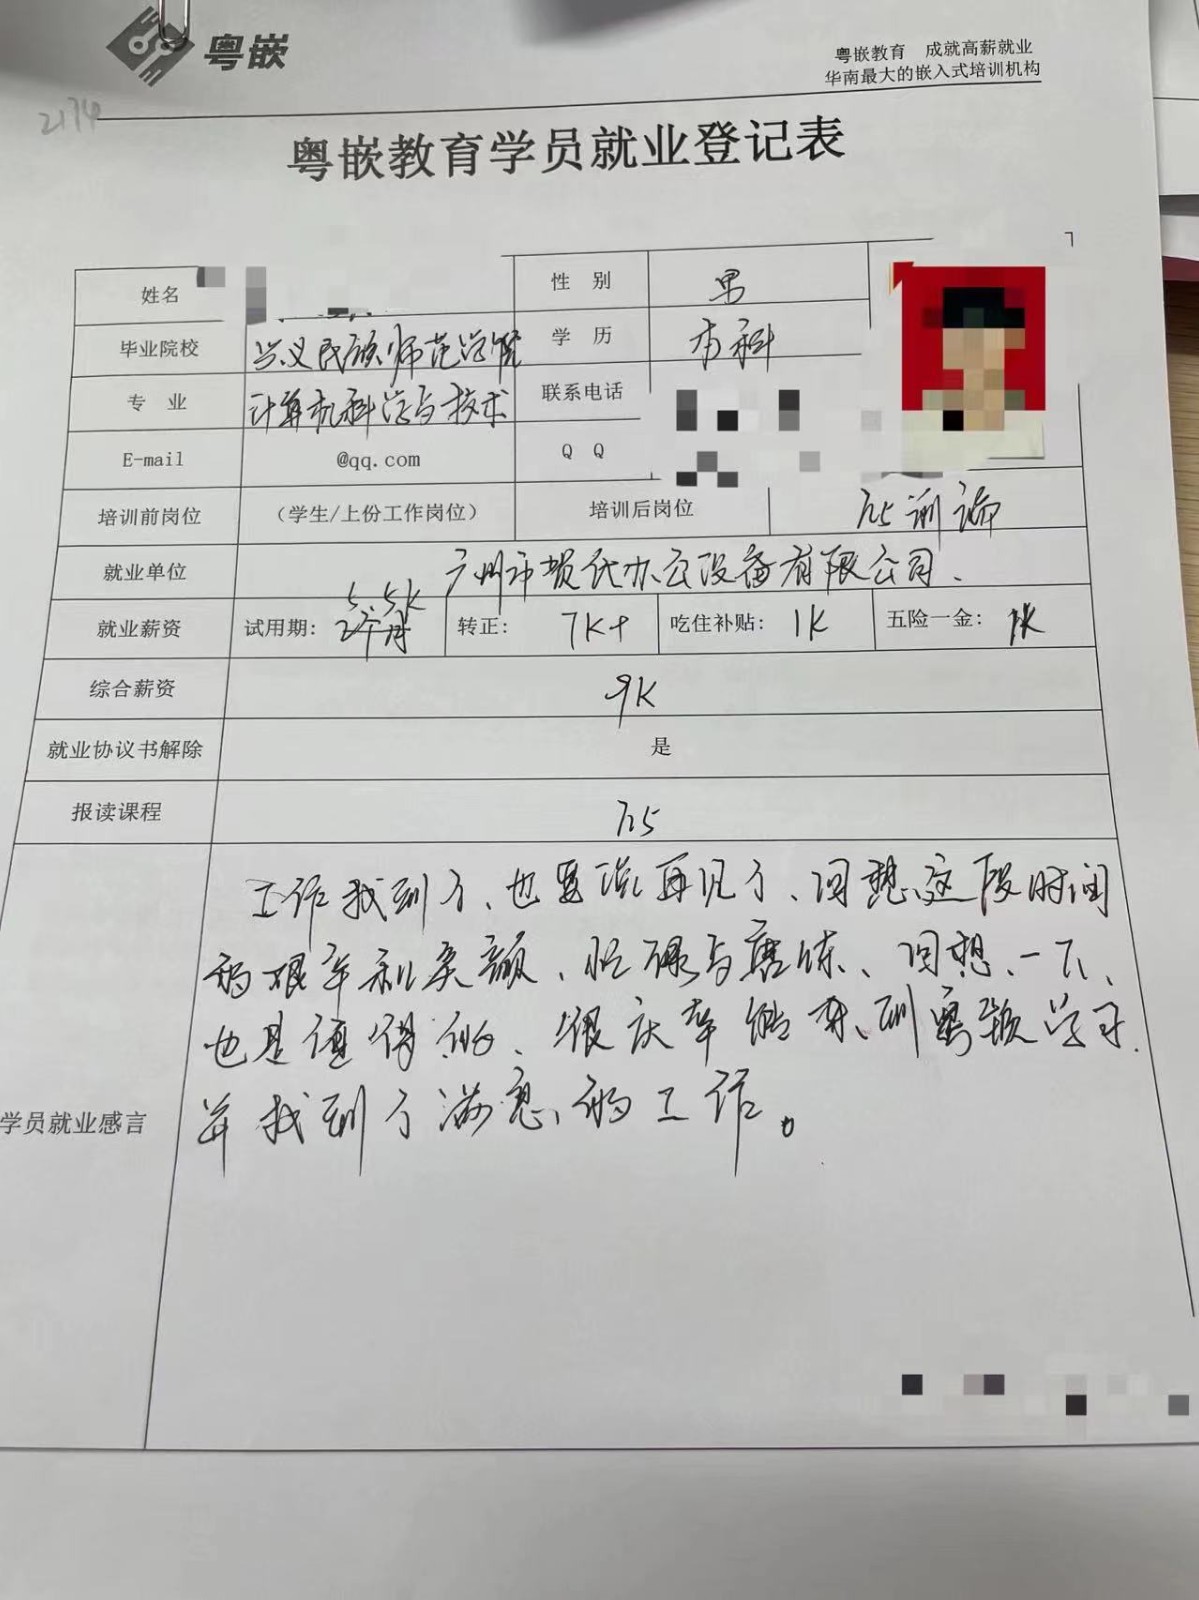 粤嵌
粤嵌教育 成就高薪就业
华南最大的嵌入式培训机构
2174
粤嵌教育学员就业登记表
姓名 性 别 男
毕业院校 兴义民族师范学院 学 历 本科
专 业 计算机科学与技术 联系电话
E-mail @qq.com Q Q
培训前岗位 (学生/上份工作岗位) 培训后岗位 h5
就业单位 广州市 代办公设备有限公司.
5.5K
就业薪资 试用期: 2个月 转正: 7K+ 吃住补贴: 1K 五险一金: 1K
综合薪资 9K
就业协议书解除 是
报读课程 h5
工作找到了、也要说再见了、回想这段时间
的艰辛和笑颜、忙碌与磨炼、回想一下、
也是值得的、很庆幸能来到粤嵌学习.
学员就业感言 并找到了满意的工作。